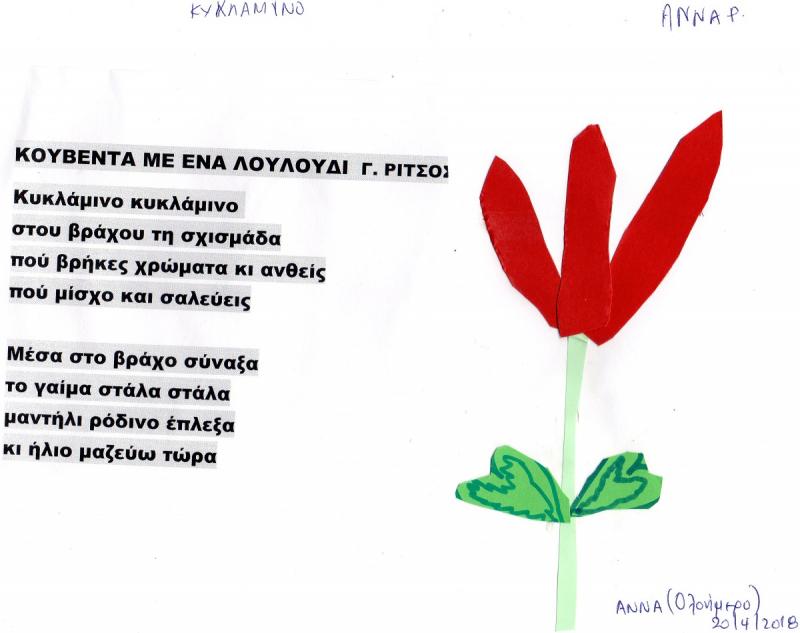 ΚΥΚΛΑΜΥΝΟ
ΑΝΝΑ Ρ.
ΚΟΥΒΕΝΤΑ ΜΕ ΕΝΑ ΛΟΥΛΟΥΔΙ Γ. ΡΙΤΣΟΣ
Κυκλάμινο κυκλάμινο
στου βράχου τη σχισμάδα
πού βρήκες χρώματα κι ανθείς
πού μίσχο και σαλεύεις
Μέσα στο βράχο σύναξα
το γαίμα στάλα στάλα
μαντήλι ρόδινο έπλεξα
κι ήλιο μαζεύω τώρα
ΑΝΝΑ (Ολοήμερο)
20/4/2018